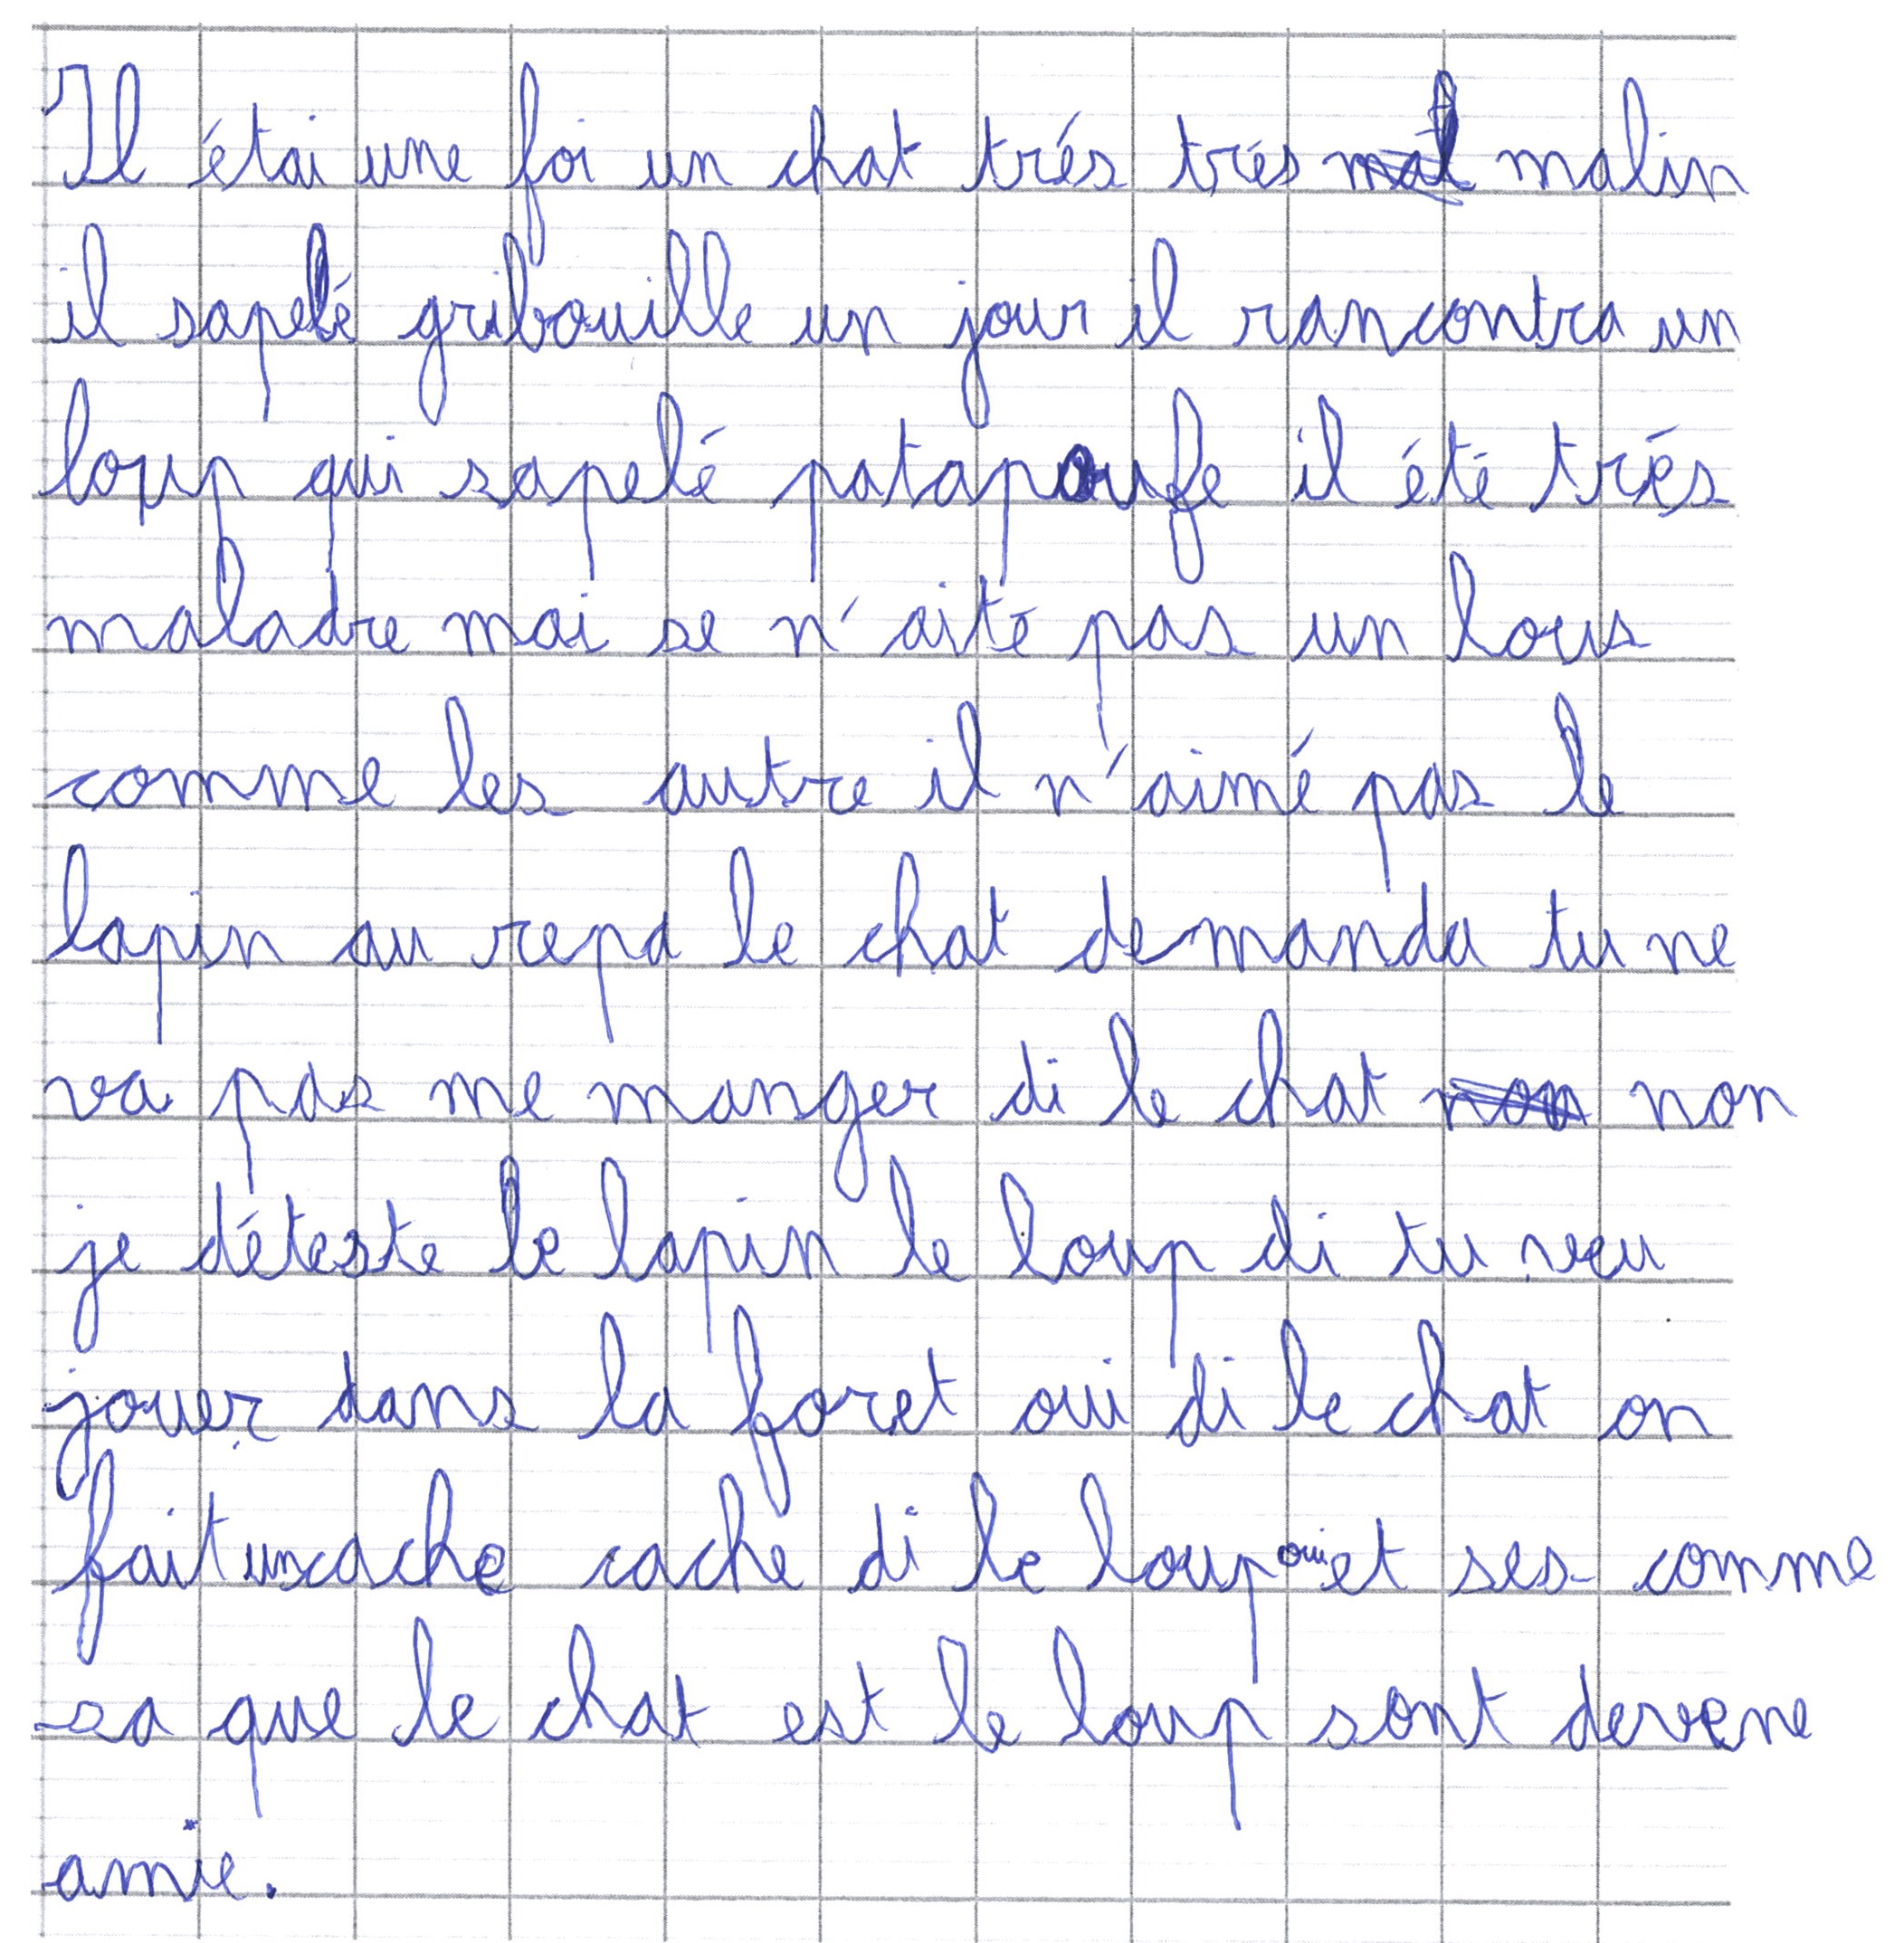 Il étai une foi un chat trés trés malin
il sapelé gribouille un jour il rancontra un
loup qui sapelé patapoufe il été trés
maladre mai se n'aité pas un lous
comme les autre il n'aimé pas le
lapin au repa le chat demanda tu ne
va pas me manger di le chat non
je déteste le lapin le loup di tu veu
jouer dans la foret oui di le chat on
fait un cache cache di le loup oui et ses comme
sa que le chat est le loup sont devene
amie.